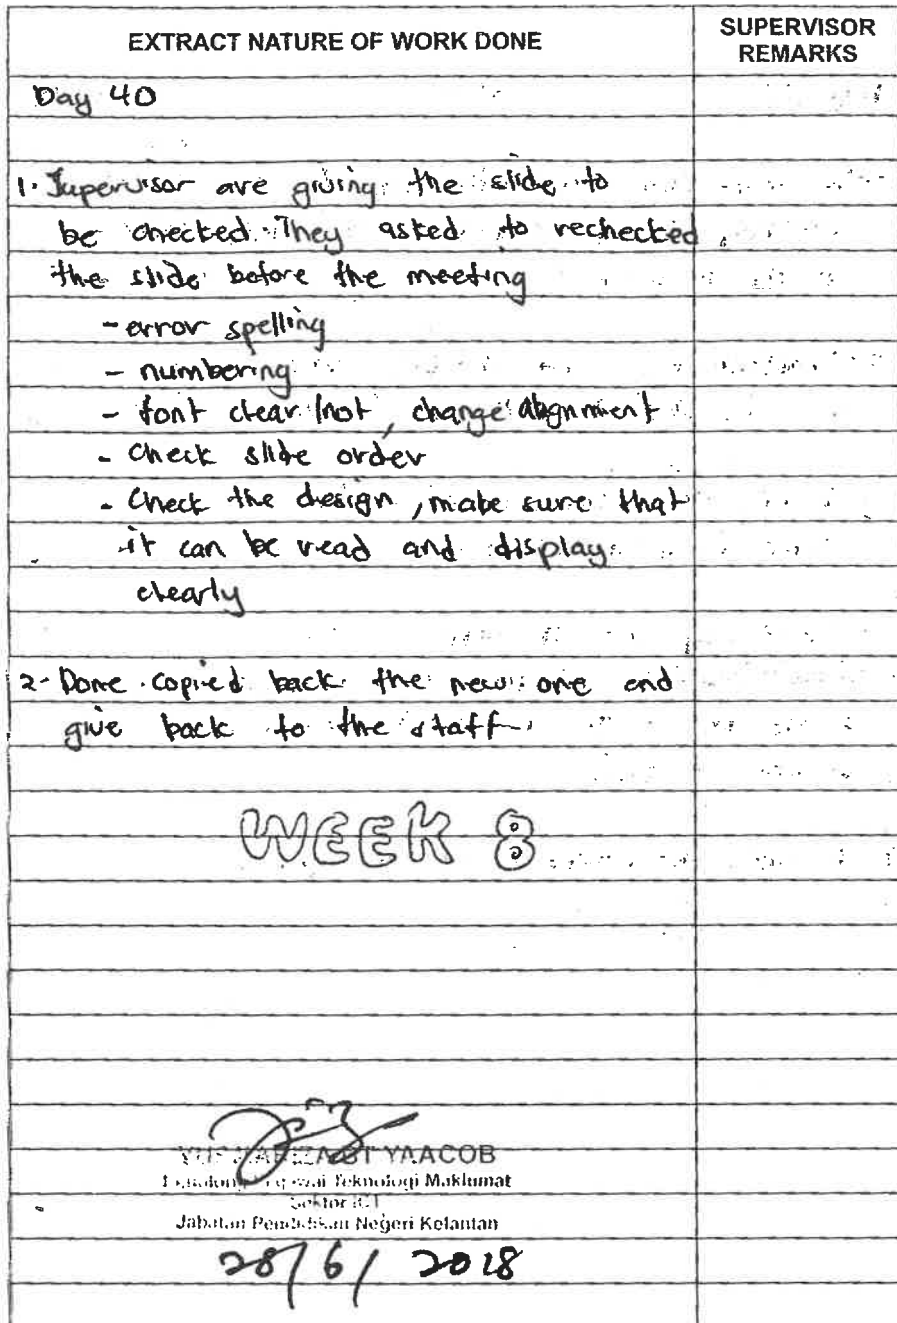 EXTRACT NATURE OF WORK DONE
SUPERVISOR REMARKS
Day 40
1. Supervisor are giving the slide to
be checked. They asked to rechecked
the slide before the meeting
- error spelling
- numbering
- font clear/not, change alignment
- Check slide order
- Check the design, make sure that
it can be read and display
clearly
2- Done copied back the new one and
give back to the staff.
WEEK 8
BT YAACOB
Teknologi Maklumat
Sektor ICT
Jabatan Pendidikan Negeri Kelantan
28/6/2018